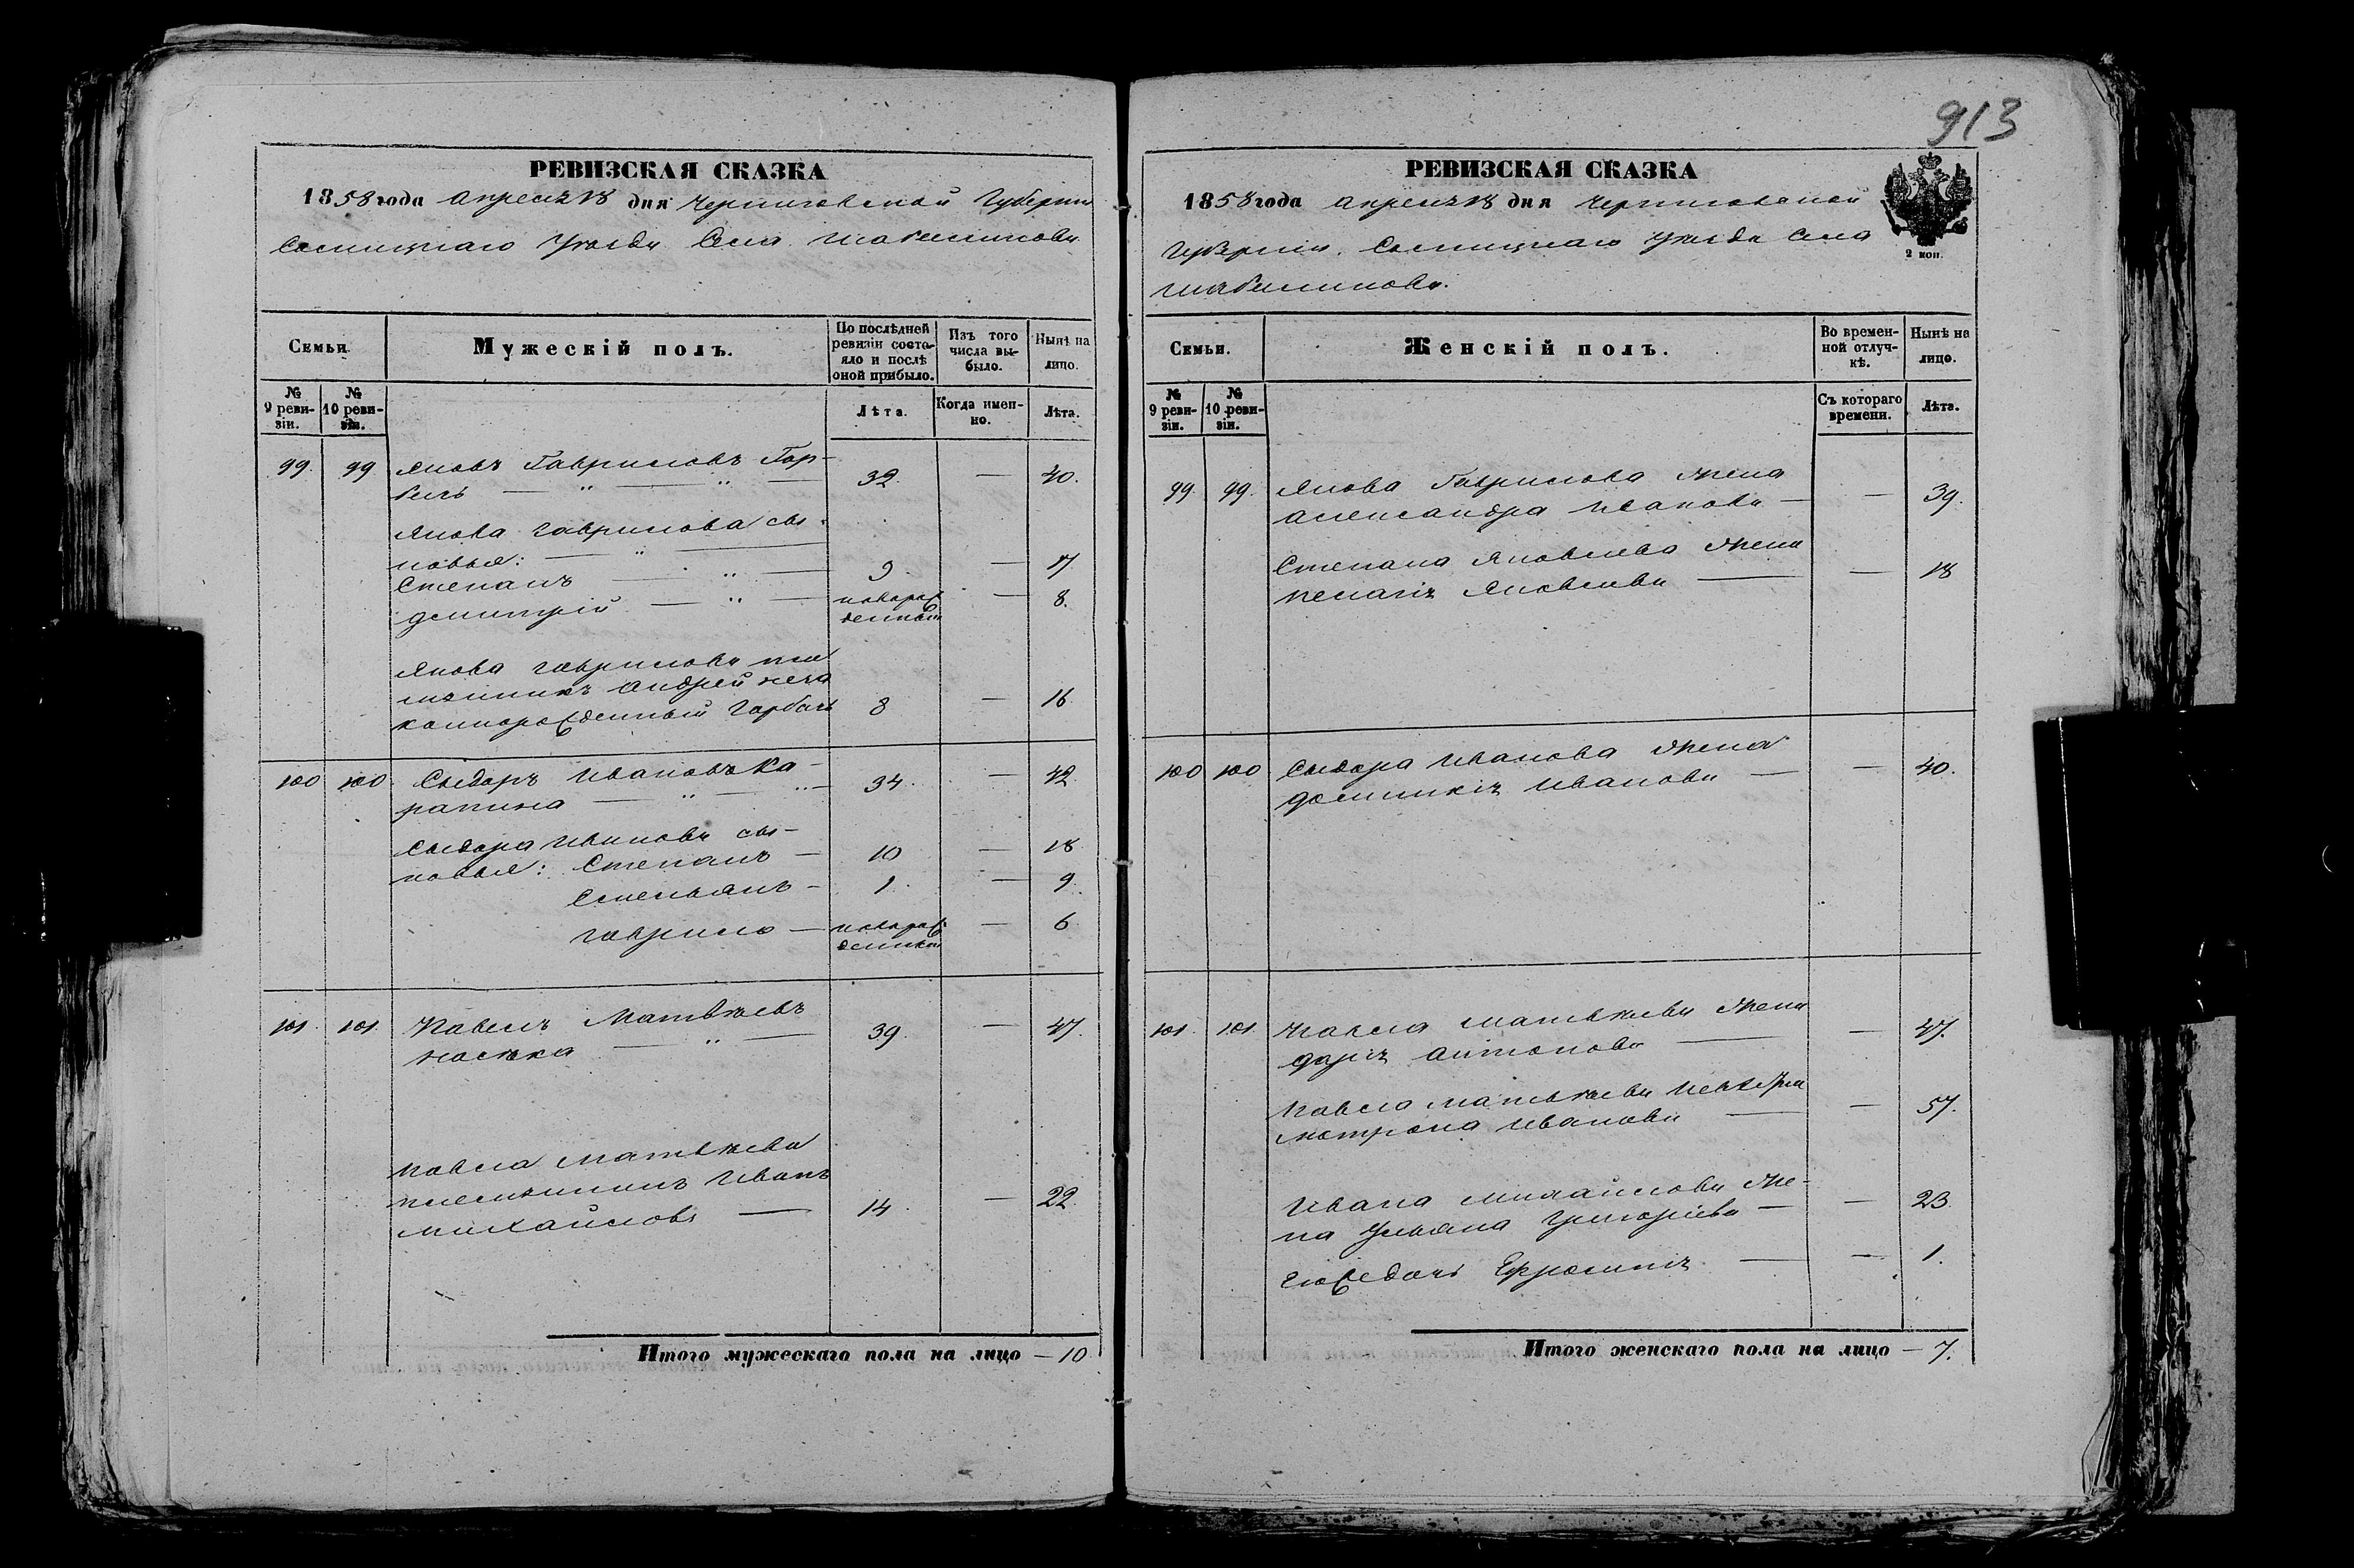 913
РЕВИЗСКАЯ СКАЗКА
1858 года Апреля 18 дня Черниговской Губернии
Сосницкаго Уѣзда Села Шабалинова
Семьи.
Мужескій полъ.
По послѣдней ревизіи состояло и послѣ оной прибыло.
Изъ того числа выбыло.
Нынѣ на лицо.
№ 9 ревизіи.
№ 10 ревизіи.
Лѣта.
Когда именно.
Лѣта.
99. 99 Яковъ Гавриловъ Гор-
бачъ — " — " — 32 — 40.
Якова Гаврилова сы-
новья: — " —
Степанъ — " — 9 — 17
Дмитрій — " — новорож — 8.
денный
Якова Гаврилова пле
мянникъ Андрей неза
коннорожденный Горбачъ 8 — 16
100 100 Сыдоръ Ивановъ Ка-
рапина — " — " — 34 — 42
Сыдора Иванова сы-
новья: Степанъ — 10 — 18
Емельянъ — 1. — 9
Гаврило — новорож — 6
денный
101. 101. Павелъ Матвѣевъ
— " — 39 — 47.
Павла Матвѣева
племянникъ Иванъ
Михайловъ — 14 — 22
Итого мужескаго пола на лицо — 10
РЕВИЗСКАЯ СКАЗКА
1858 года Апреля 18 дня Черниговской
Губерніи. Сосницкаго Уѣзда Села
Шабалинова.
2 коп.
Семьи.
Женскій полъ.
Во временной отлучкѣ.
Нынѣ на лицо.
№ 9 ревизіи.
№ 10 ревизіи.
Съ котораго времени.
Лѣта.
99. 99. Якова Гаврилова жена
Александра Иванова — — 39.
Степана Яковлева жена
Пелагія Яковлева — — 18
100 100 Сыдора Иванова жена
Домникія Иванова — — 40.
101. 101. Павла Матвѣева жена
Дарія Антонова — — 47.
Павла Матвѣева
Мотрона Иванова — — 57.
Ивана Михайлова же-
на Ульяна Григоріева — — 23
Ефросинія — — 1.
Итого женскаго пола на лицо — 7.